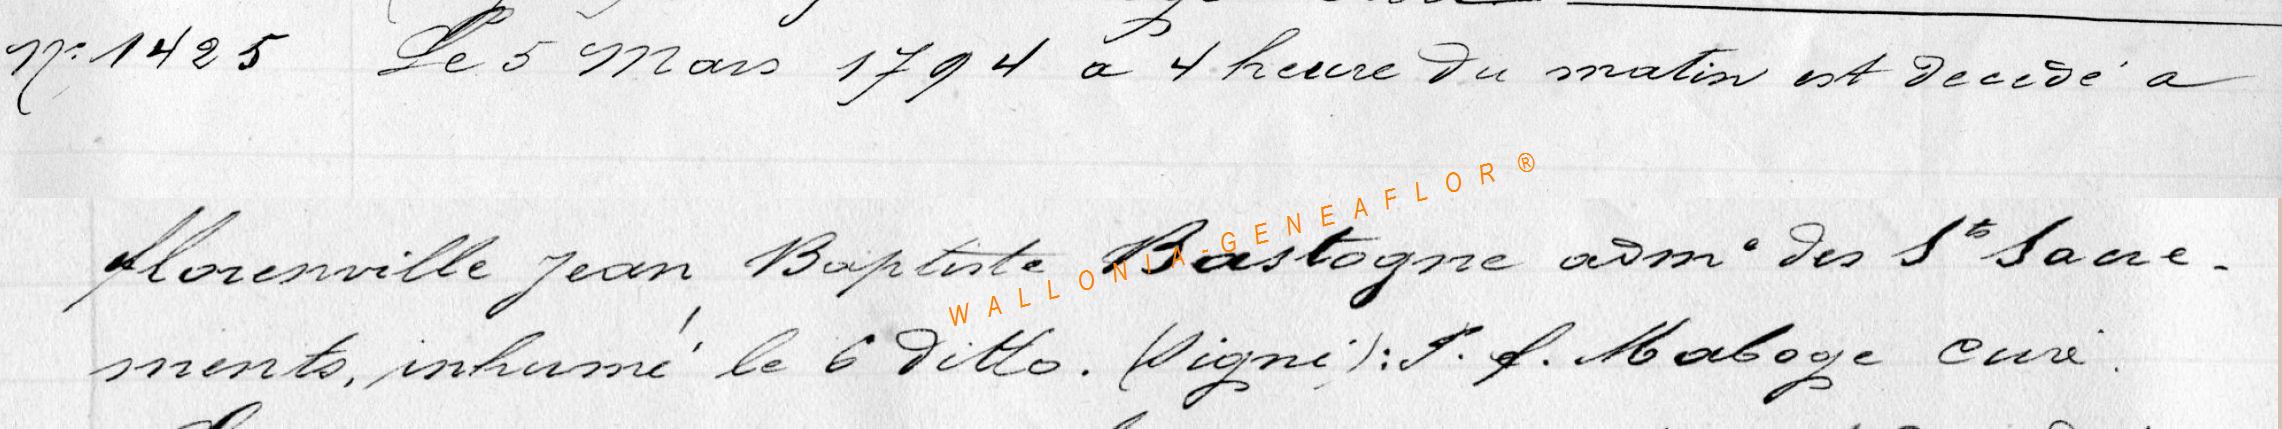 N° 1425 Le 5 Mars 1794 a 4 heure du matin est decedé a
florenville Jean Baptiste Bastogne adm^e des S^ts Sacre-
ments, inhumé le 6 ditto. (Signé): J. f. Maboge Curé.
WALLONIA-GENEAFLOR ®